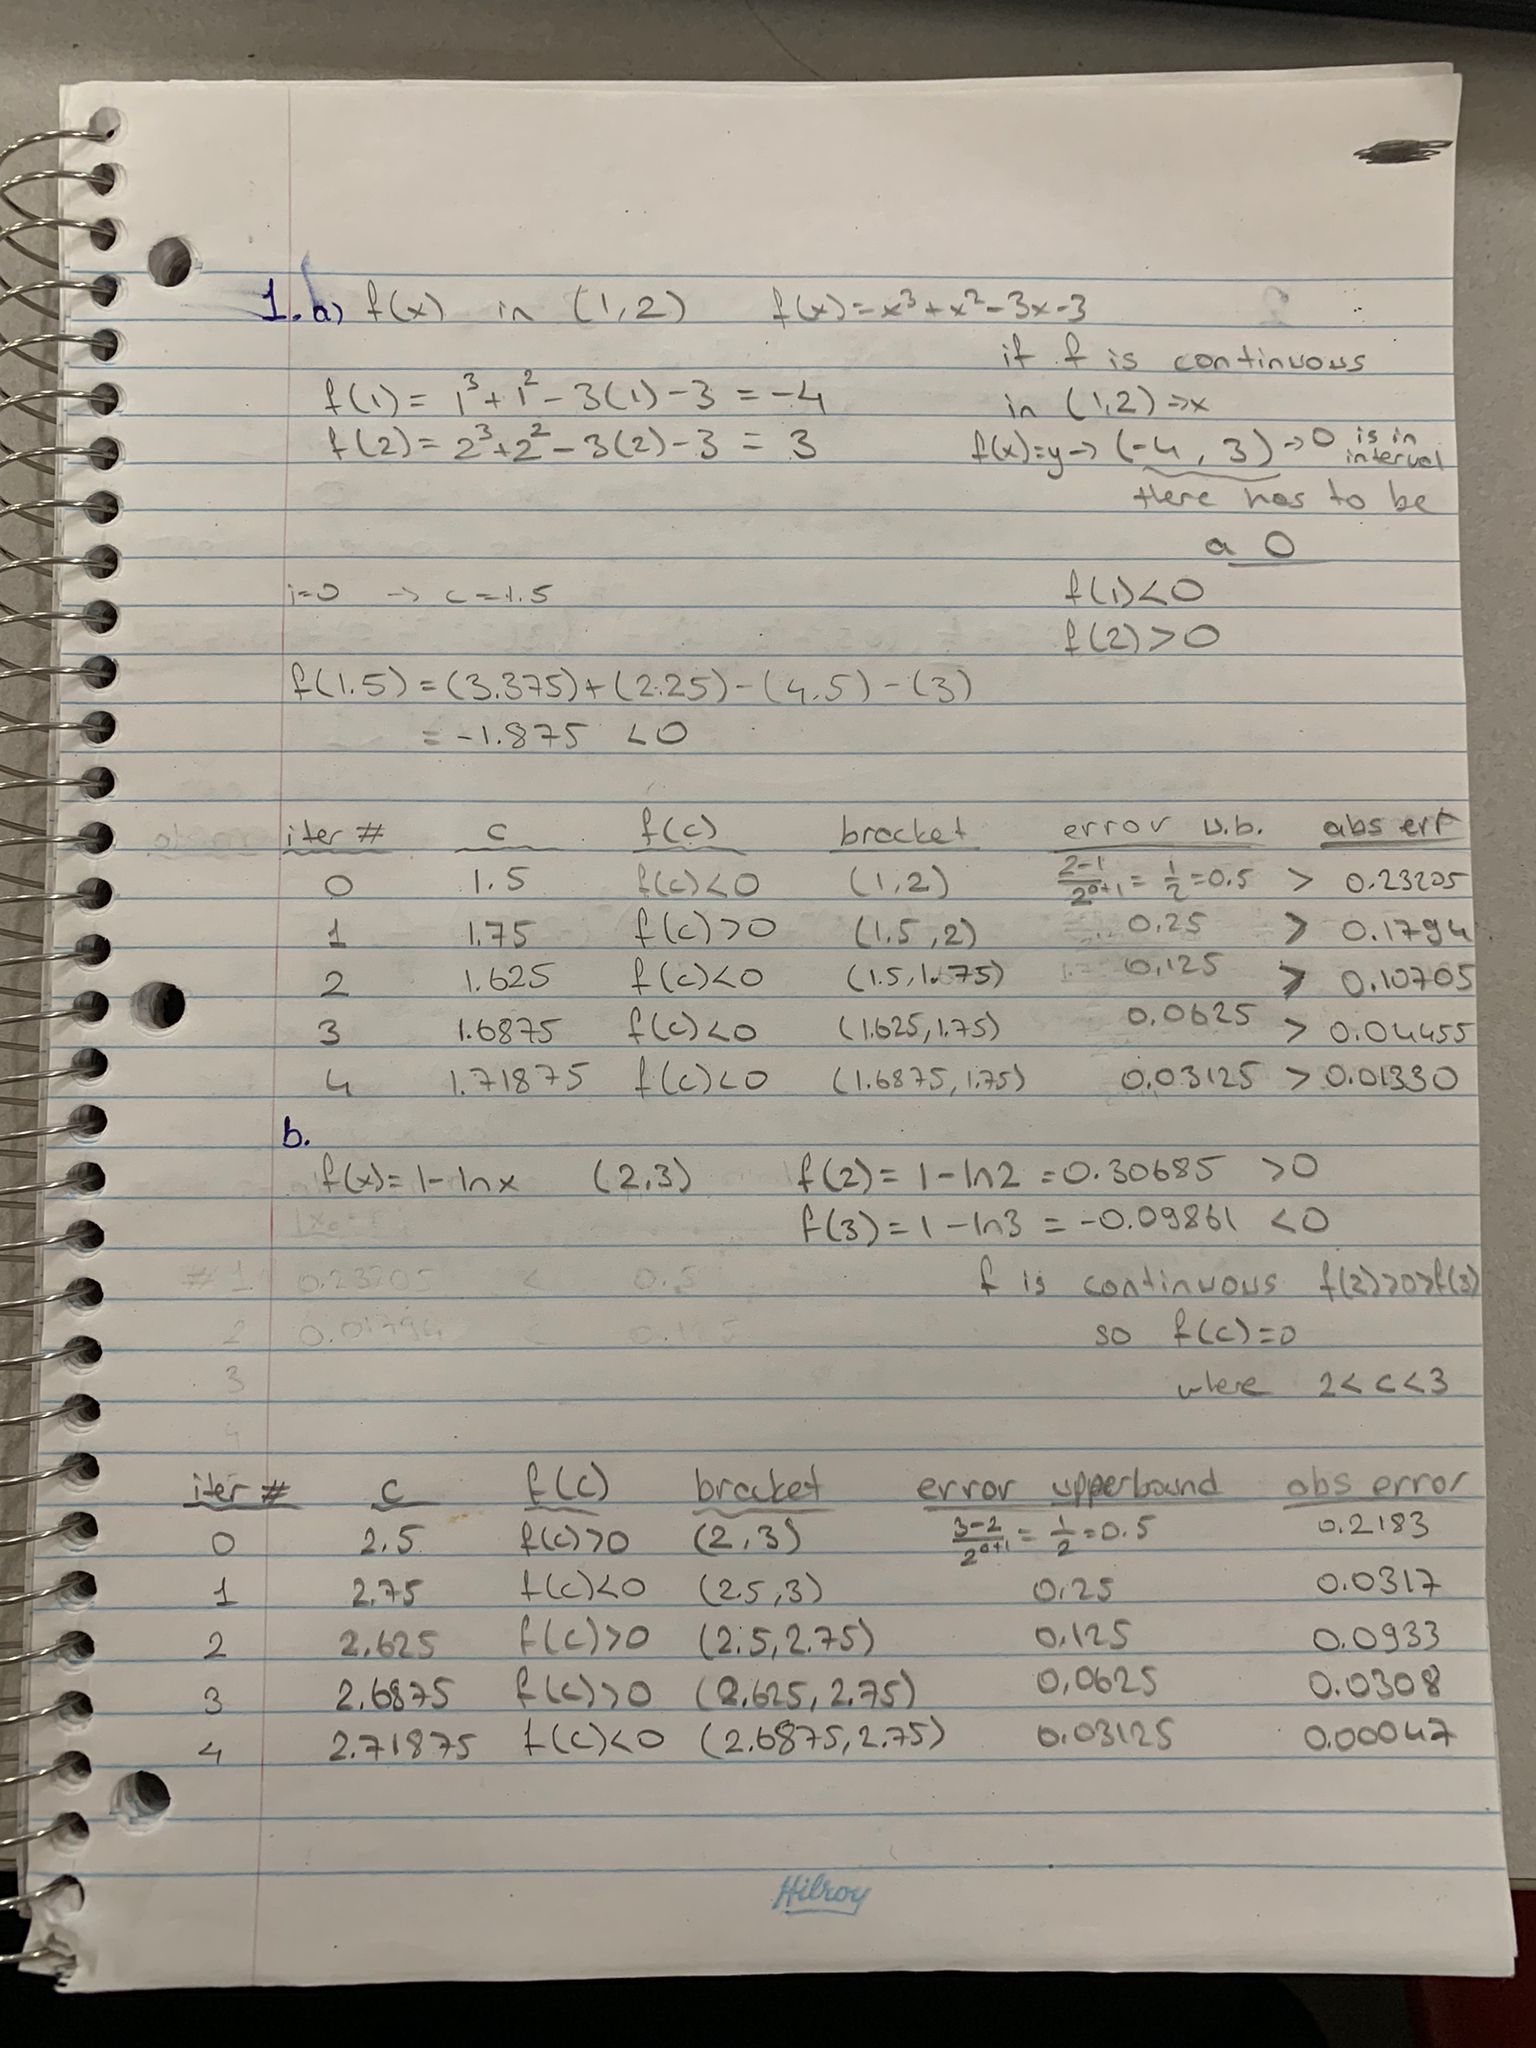 1. a) f(x) in (1,2) f(x)=x³+x²-3x-3
if f is continuous
f(1) = 1³+1²-3(1)-3 = -4 in (1,2) ⇒x
f(2) = 2³+2²-3(2)-3 = 3 f(x)=y→(-4, 3)→0 is in interval
there has to be
a 0
i=0 → c=1.5 f(1)<0
f(2)>0
f(1.5)=(3.375)+(2.25)-(4.5)-(3)
= -1.875 <0
iter # c f(c) bracket error u.b. abs err
0 1.5 f(c)<0 (1,2) 2-1/2⁰⁺¹ = 1/2 = 0.5 > 0.23205
1 1.75 f(c)>0 (1.5,2) 0.25 > 0.1794
2 1.625 f(c)<0 (1.5,1.75) 0.125 > 0.10705
3 1.6875 f(c)<0 (1.625,1.75) 0.0625 > 0.04455
4 1.71875 f(c)<0 (1.6875,1.75) 0.03125 > 0.01330
b.
f(x)=1-lnx (2,3) f(2)=1-ln2=0.30685 >0
f(3)=1-ln3=-0.09861 <0
#1 0.23205 < 0.5 f is continuous f(2)>0>f(3)
2 0.01794 < so f(c)=0
3 where 2<c<3
4
iter # c f(c) bracket error upperbound abs error
0 2.5 f(c)>0 (2,3) 3-2/2⁰⁺¹ = 1/2 = 0.5 0.2183
1 2.75 f(c)<0 (2.5,3) 0.25 0.0317
2 2.625 f(c)>0 (2.5,2.75) 0.125 0.0933
3 2.6875 f(c)>0 (2.625,2.75) 0.0625 0.0308
4 2.71875 f(c)<0 (2.6875,2.75) 0.03125 0.00047
Hilroy